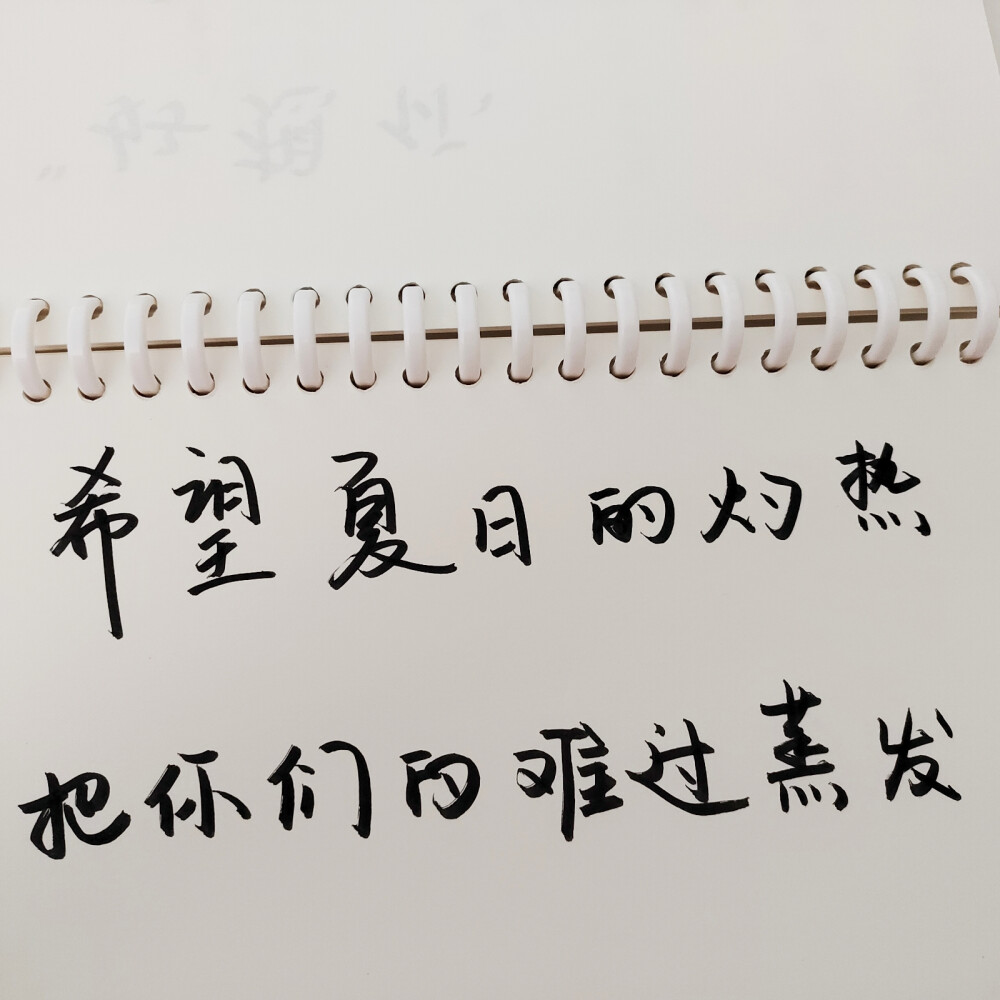 希望夏日的灼热
把你们的难过蒸发